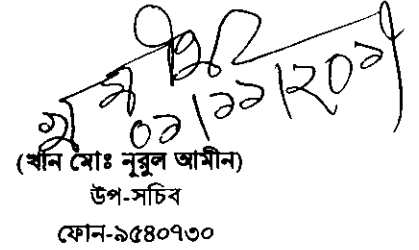 ০১/১১/২০১১
(খান মোঃ নূরুল আমীন)
উপ-সচিব
ফোন-৯৫৪০৭৩০